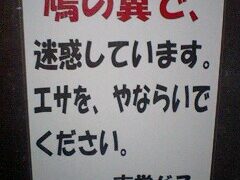 鳩の糞で、
迷惑しています。
エサを、やならいで
ください。